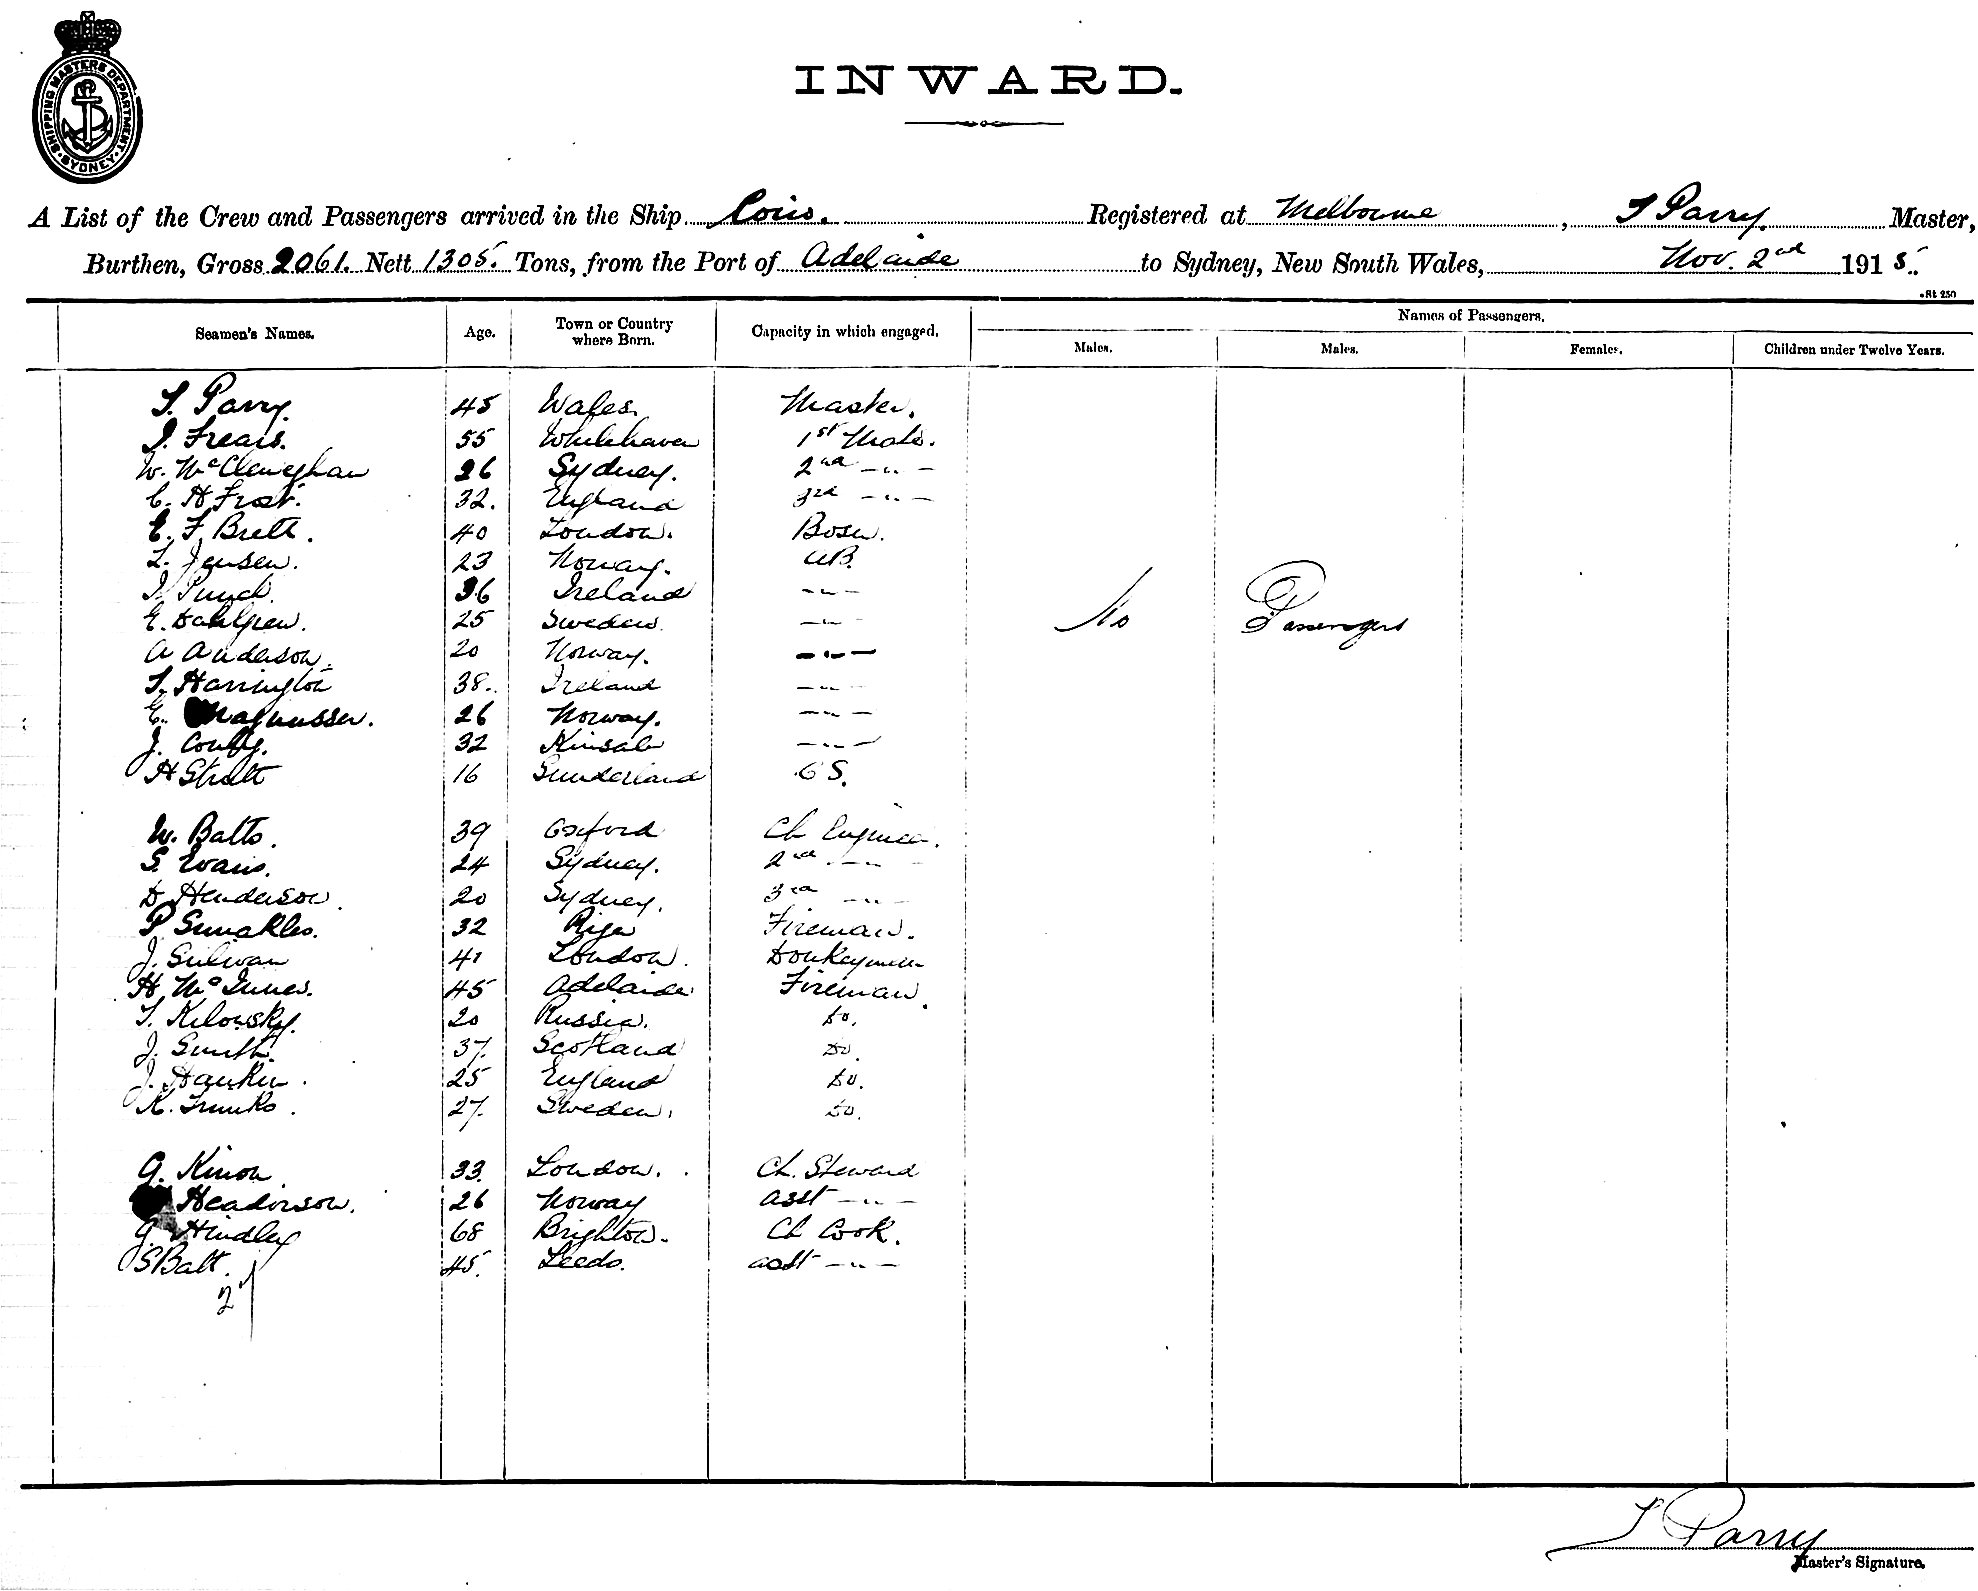 SHIPPING MASTERS DEPARTMENT. SYDNEY
INWARD.
A List of the Crew and Passengers arrived in the Ship Registered at Melbourne, T Parry. Master,
Burthen, Gross 2061. Nett 1305. Tons, from the Port of Adelaide to Sydney, New South Wales, Nov. 2nd 1915.
St 250
Seamen's Names. Age. Town or Country where Born. Capacity in which engaged. Names of Passengers.
Males. Males. Females. Children under Twelve Years.
T. Parry. 45 Wales. Master.
55 Whitehaven 1st Mate.
W. McCleneghan 26 Sydney. 2nd - " -
C. H Frost. 32. England 3rd - " -
E. F. Brett. 40 London. Bosn.
L. Jensen. 23 Norway. AB.
Punch. 36 Ireland - " -
E. Dahlgren. 25 Sweden. - " -
A Anderson. 20 Norway. - " -
T. Harrington 38. Ireland - " -
E. Magnussen. 26 Norway. - " -
J. 32 Kinsale - " -
H 16 Sunderland OS.
No Passengers
W. Batts. 39 Oxford Ch Engineer.
S Evans. 24 Sydney. 2nd - " -
D Henderson. 20 Sydney. 3rd - " -
P 32 Riga Fireman.
J. Sulivan 41 London. Donkeyman
H McInnes. 45 Adelaide Fireman.
T. Kilowsky. 20 Russia. Do.
J. Smith. 37. Scotland Do.
J. Hankin. 25 England Do.
K. 27. Sweden. Do.
G. Kinon. 33. London. Ch. Steward
26 Norway asst - " -
G. Hindley 68 Brighton. Ch Cook.
S Batt. 45. Leeds. asst - " -
27
T Parry
Master's Signature.